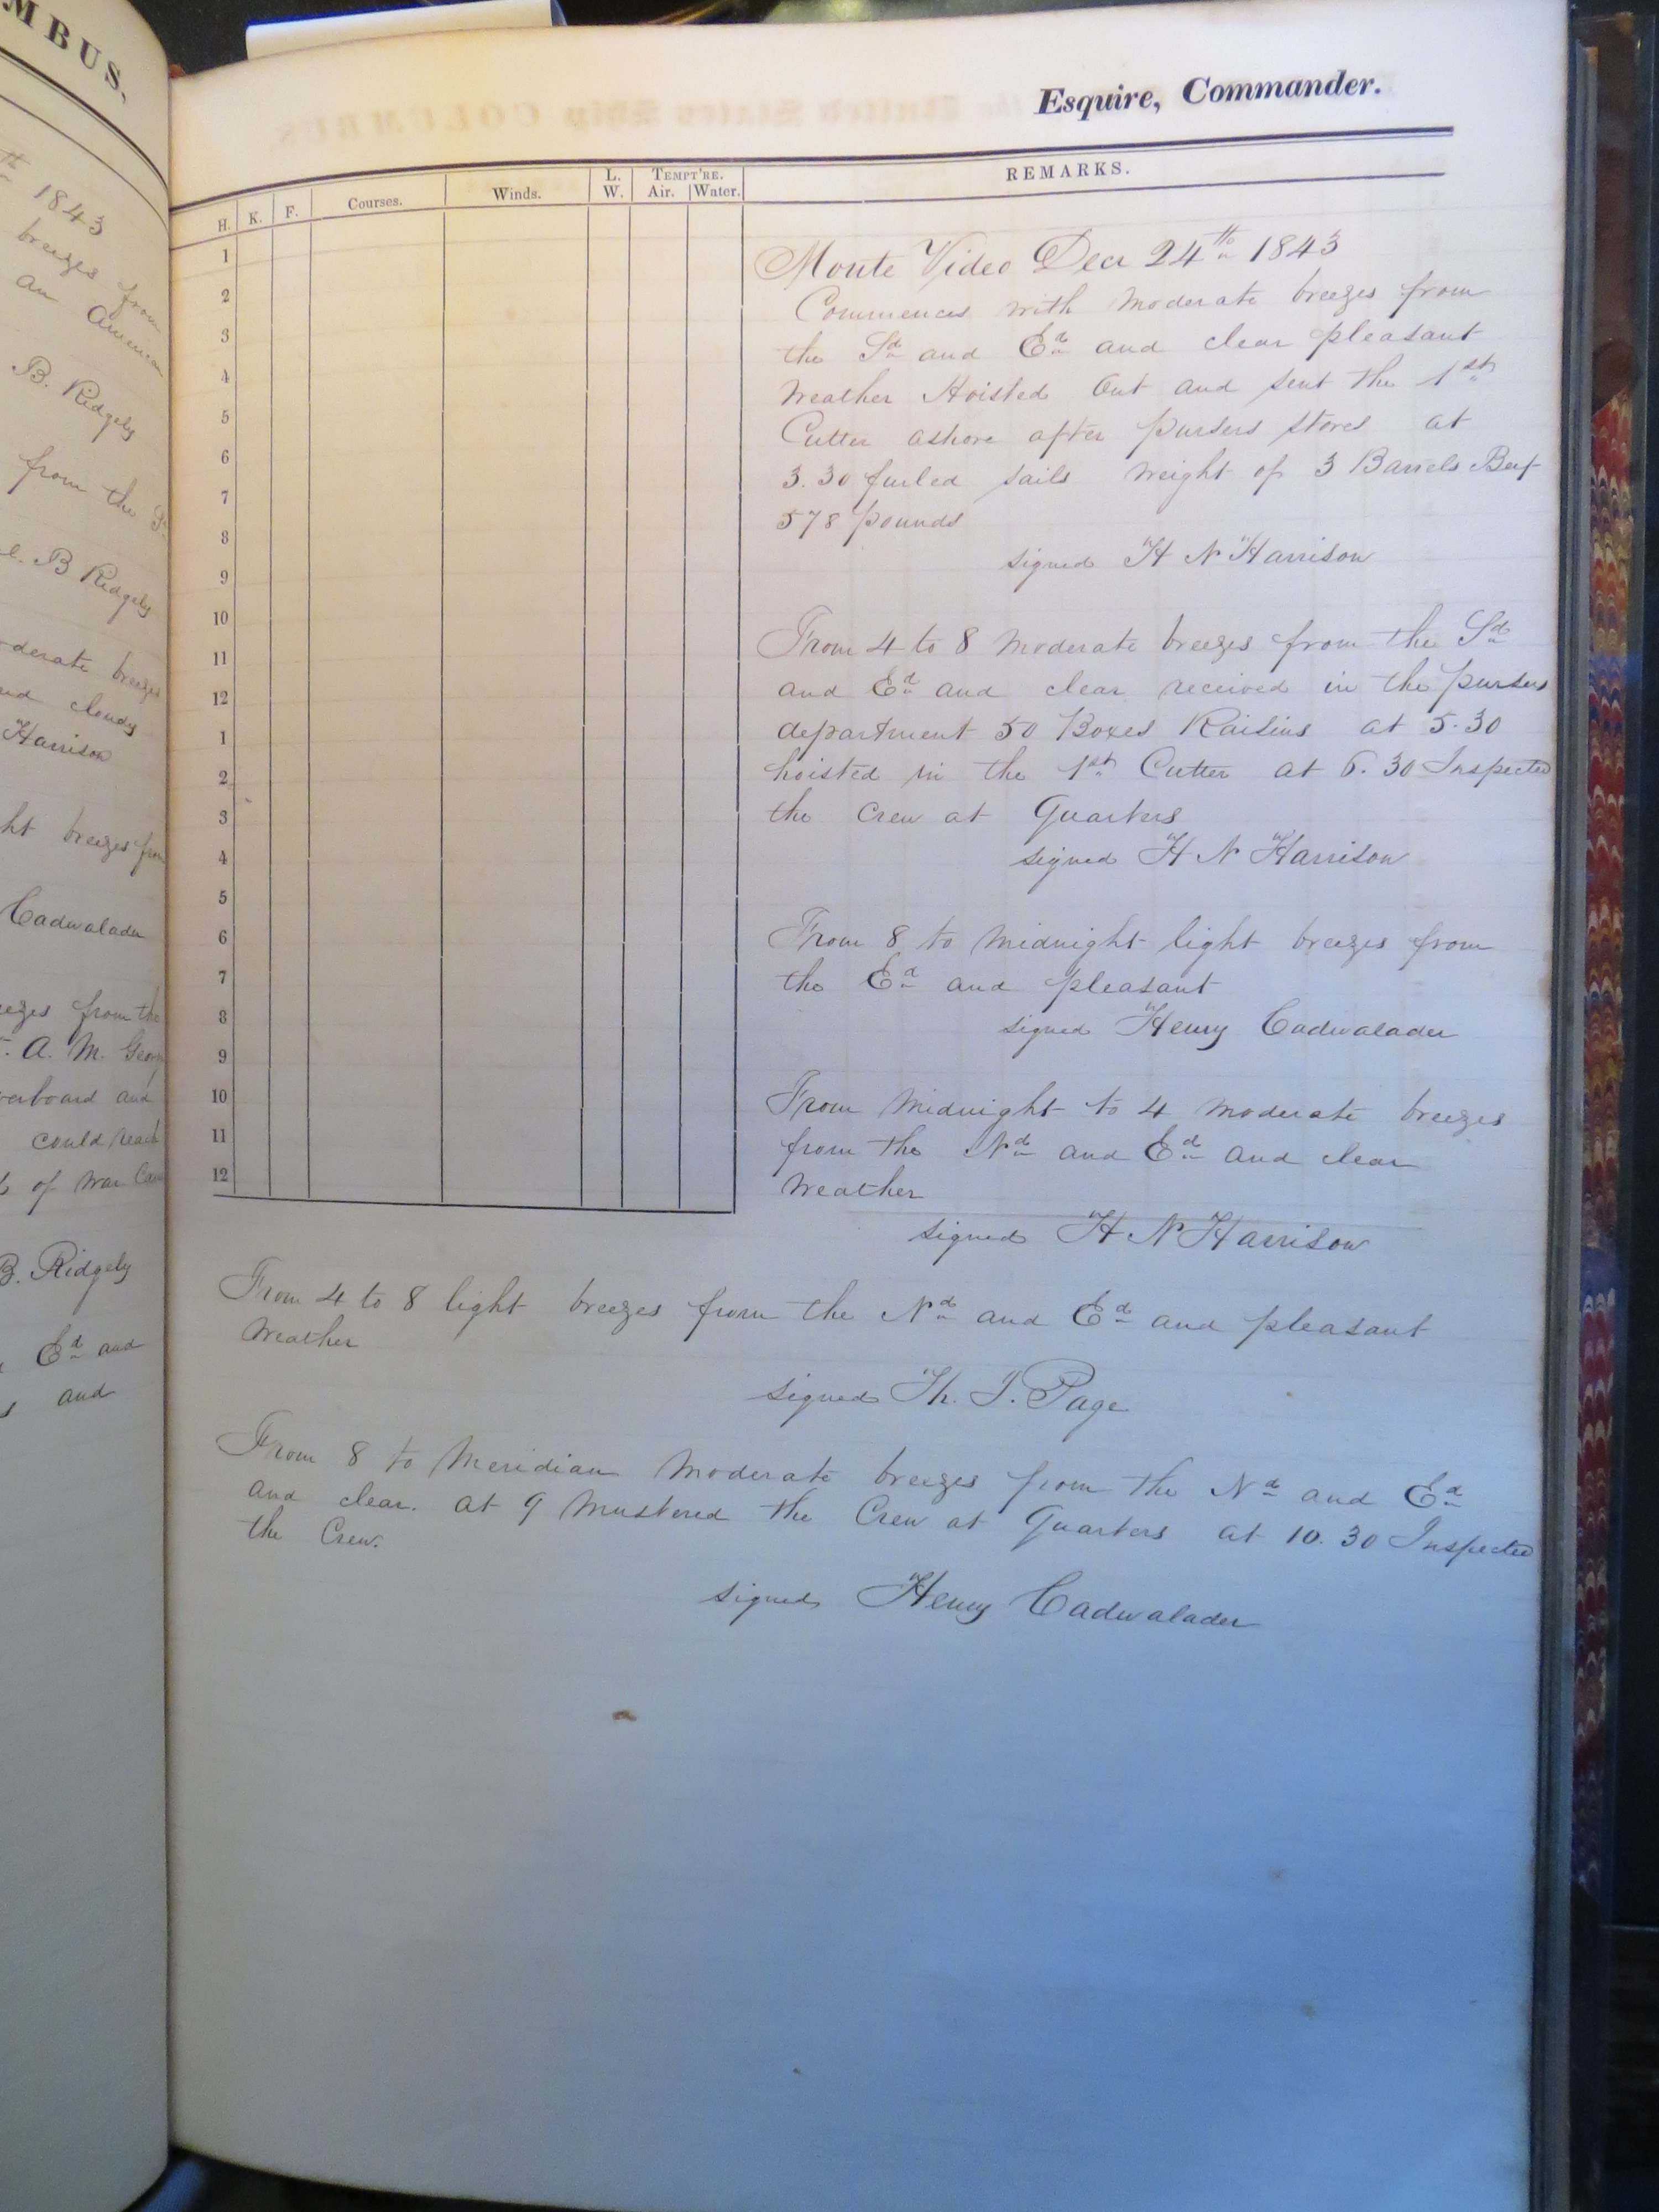 MBUS.
1843
breezes from
an American
B. Ridgely
from the Sd
B Ridgely
breezes
cloudy
Harrison
breezes from
Cadwalader
from the
A. M.
and
could reach
of War
B. Ridgely
Ed and
and
Esquire, Commander.
H. K. F. Courses. Winds. L. W. TEMPT'RE. Air. Water. REMARKS.
1
2
3
4
5
6
7
8
9
10
11
12
1
2
3
4
5
6
7
8
9
10
11
12
Monte Video Decr 24th 1843
Commences with moderate breezes from
the Sd and Ed and clear pleasant
weather Hoisted out and sent the 1st
Cutter ashore after pursers stores at
3.30 furled sails weight of 3 Barrels Beef
578 pounds
signed H N Harrison
From 4 to 8 moderate breezes from the Sd
and Ed and clear received in the pursers
department 50 Boxes Raisins at 5.30
hoisted in the 1st Cutter at 6.30 Inspected
the Crew at Quarters
signed H N Harrison
From 8 to midnight light breezes from
the Ed and pleasant
signed Henry Cadwalader
From Midnight to 4 moderate breezes
from the Nd and Ed and clear
weather
signed H N Harrison
From 4 to 8 light breezes from the Nd and Ed and pleasant
weather
signed Th. J. Page
From 8 to Meridian moderate breezes from the Nd and Ed
and clear. at 9 mustered the Crew at Quarters at 10.30 Inspected
the Crew.
signed Henry Cadwalader